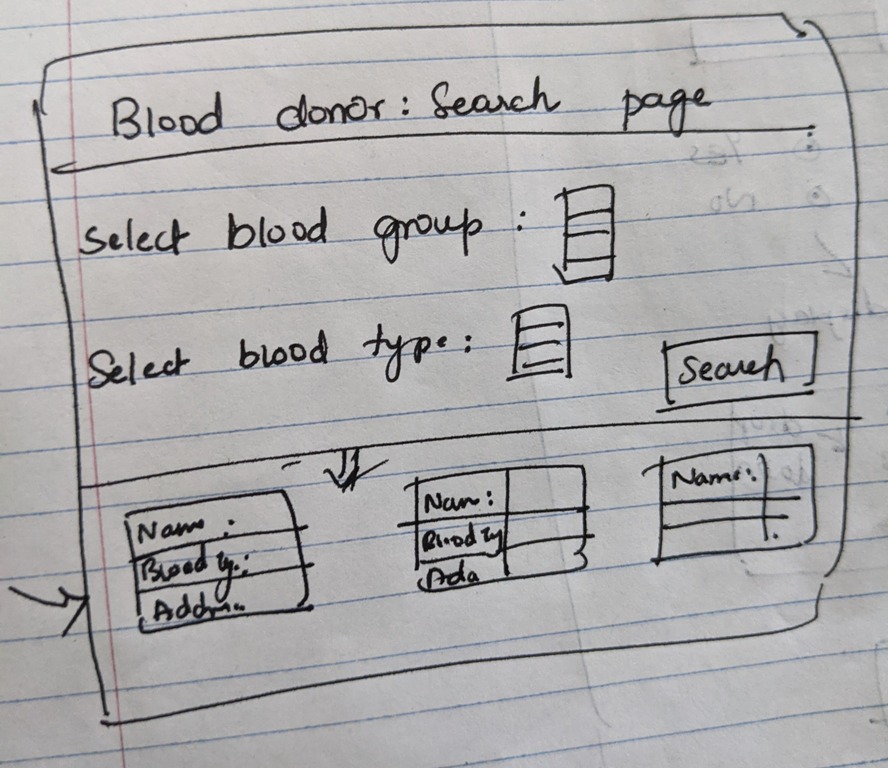 Blood donor: Search page
Select blood group :
Select blood type :
Search
Name :
Blood ty.:
Nam :
Blood ty
Name :
Yes
No